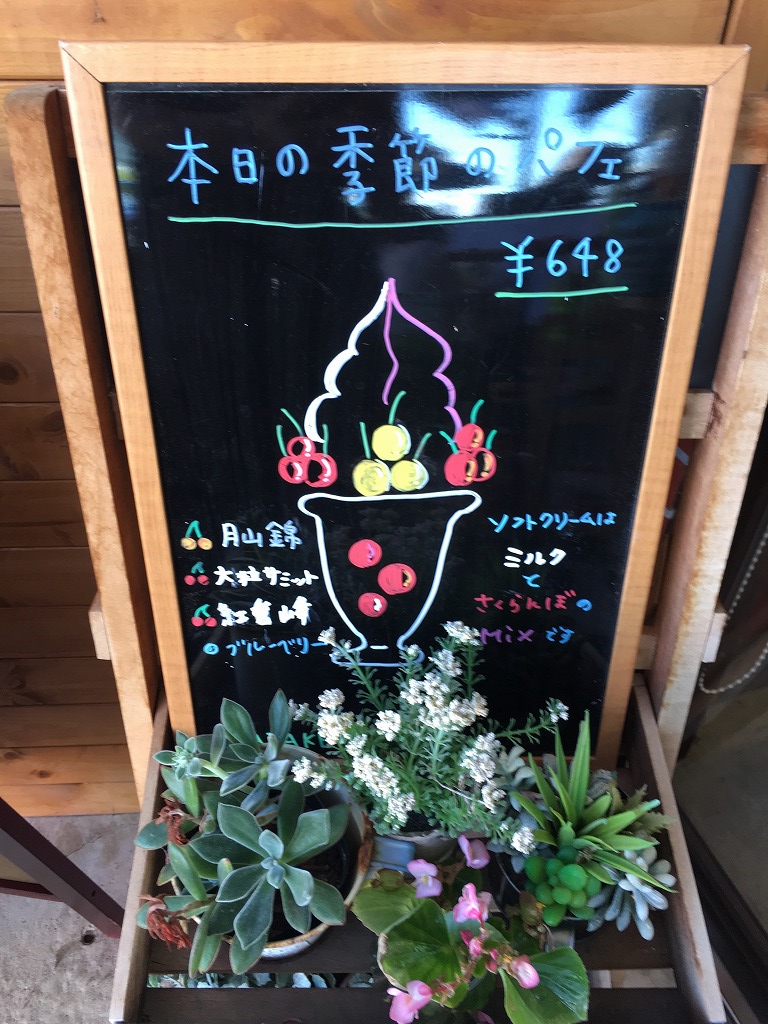 本日の季節のパフェ
¥648
月山錦
大粒サミット
紅秀峰
ブルーベリー
ソフトクリームは
ミルク
と
さくらんぼの
Mixです